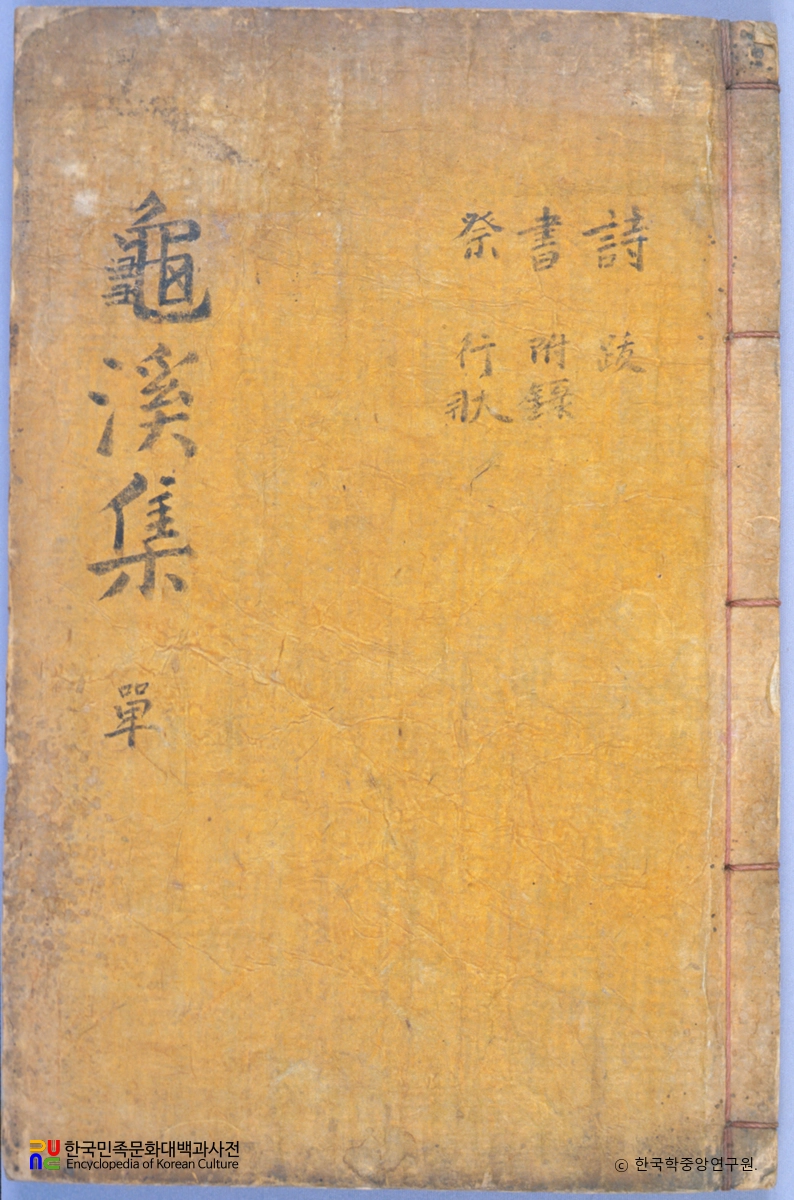 詩 跋
書 附錄
祭 行狀
龜溪集 單
한국민족문화대백과사전
Encyclopedia of Korean Culture
© 한국학중앙연구원.